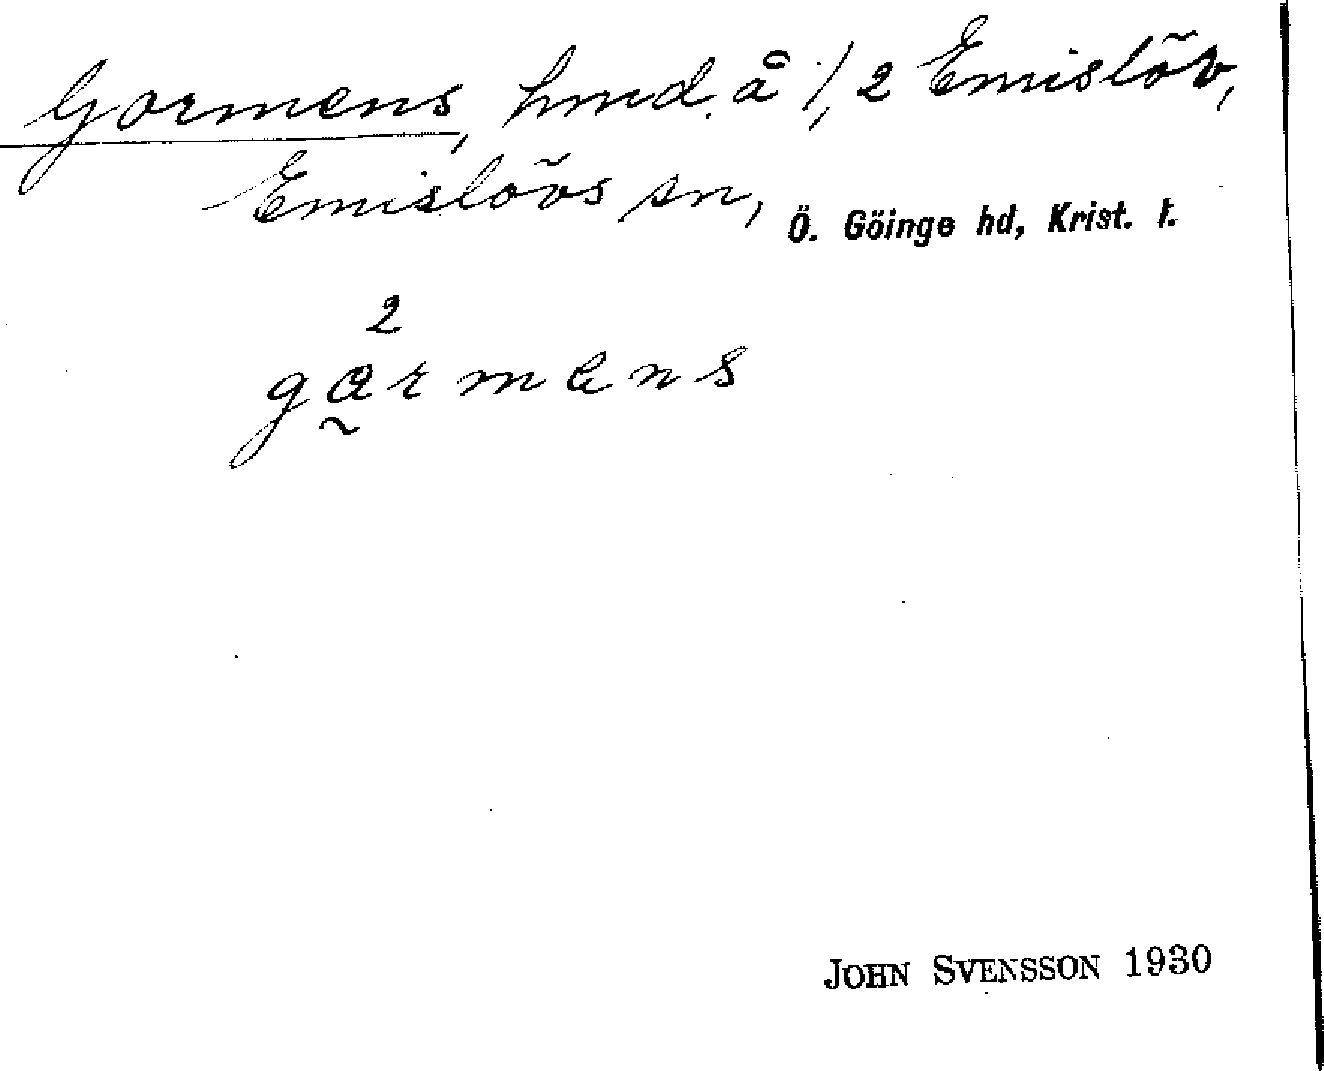 Gormens, hmd. å 1/2 Emislöv,
Emislövs sn, Ö. Göinge hd, Krist. l.
2
gårmens
JOHN SVENSSON 1930